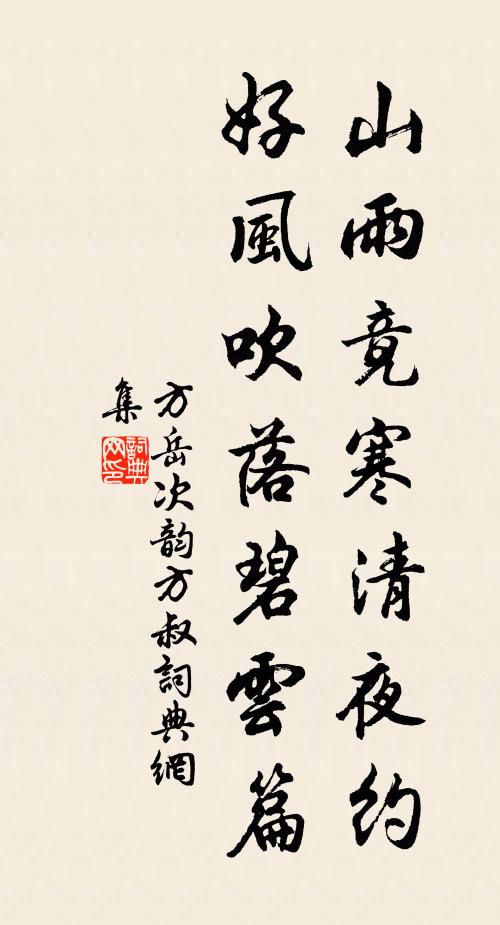 山雨竞寒清夜約
好風吹落碧雲篇
方岳次韵方叔詞典網
集
詞典網印